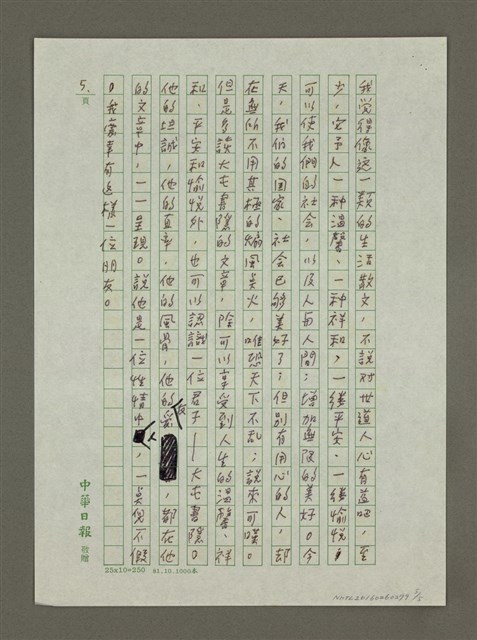 我覺得像這一類的生活散文，不說對世道人心有益吧，至
少，它予人一種溫馨、一種祥和，一縷平安、一縷愉悅，
可以使我們的社會，以及人與人間；增加無限的美好。今
天，我們的國家、社會已夠美好了；但別有用心的人，却
在無所不用其極的煽風點火，唯恐天下不亂；說來可嘆。
但是多讀大屯書隱的文章，除可以享受到人生的溫馨、祥
和、平安和愉悅外，也可以認識一位君子——大屯書隱。
他的坦誠，他的真率，他的風骨，他的愛，都在他
的文章中，一一呈現。說他是一位性情中人，一點兒不假
。我慶幸有這樣一位朋友。
5.
頁
中華日報
敬贈
25x10=250 81.10.1000本